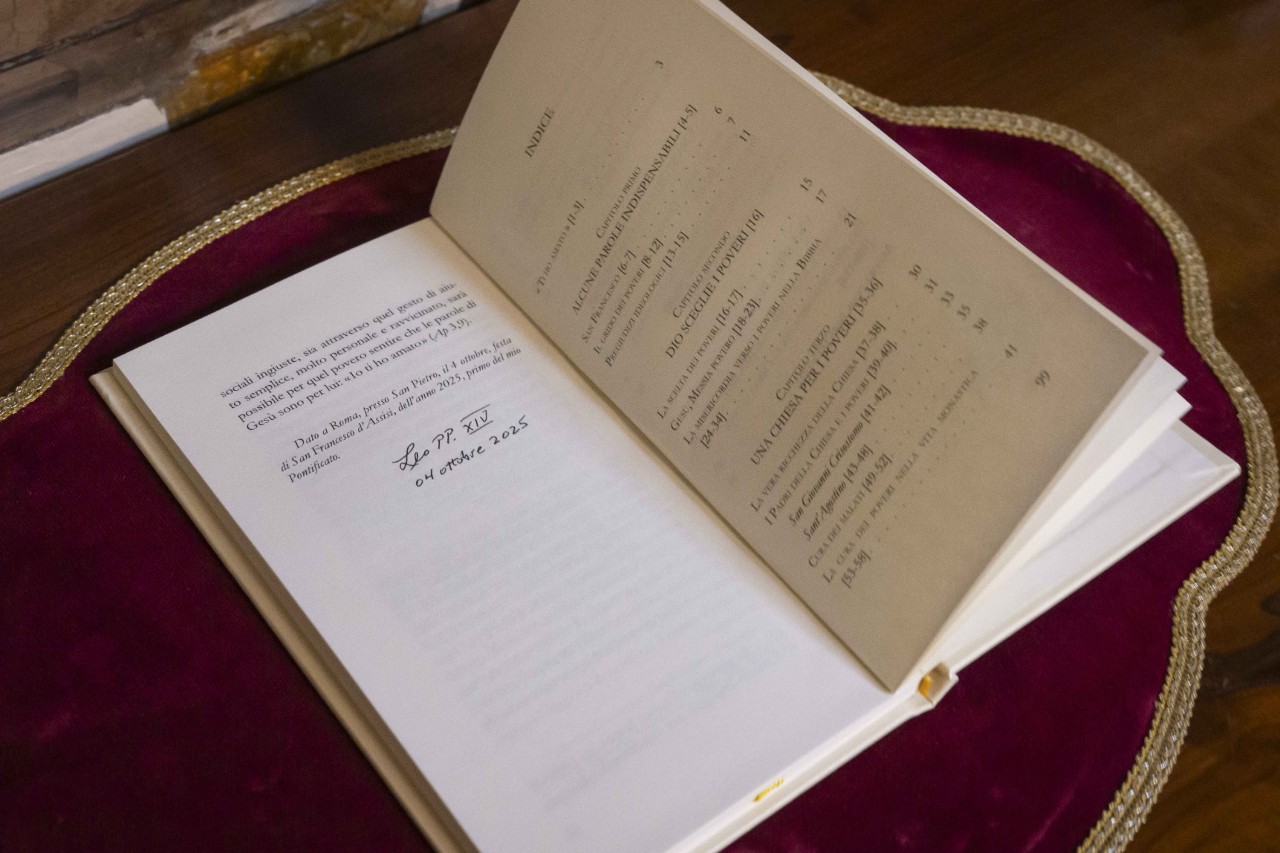 sociali ingiuste, sia attraverso quel gesto di aiu-
to semplice, molto personale e ravvicinato, sarà
possibile per quel povero sentire che le parole di
Gesù sono per lui: «Io ti ho amato» (Ap 3,9).
Dato a Roma, presso San Pietro, il 4 ottobre, festa
di San Francesco d'Assisi, dell'anno 2025, primo del mio
Pontificato.
Leo PP. XIV
04 ottobre 2025
INDICE
« Ti ho amato » [1-3] . . . 3
Capitolo primo
ALCUNE PAROLE INDISPENSABILI [4-5]
San Francesco [6-7] . . . 6
Il grido dei poveri [8-12] . . . 7
Pregiudizi ideologici [13-15] . . . 11
Capitolo secondo
DIO SCEGLIE I POVERI [16]
La scelta dei poveri [16-17] . . . 15
Gesù, Messia povero [18-23] . . . 17
La misericordia verso i poveri nella Bibbia
[24-34] . . . 21
Capitolo terzo
UNA CHIESA PER I POVERI [35-36]
La vera ricchezza della Chiesa [37-38] . . . 30
I Padri della Chiesa e i poveri [39-40] . . . 31
San Giovanni Crisostomo [41-42] . . . 33
Sant'Agostino [43-48] . . . 35
Cura dei malati [49-52] . . . 38
La cura dei poveri nella vita monastica
[53-58] . . . 41
99